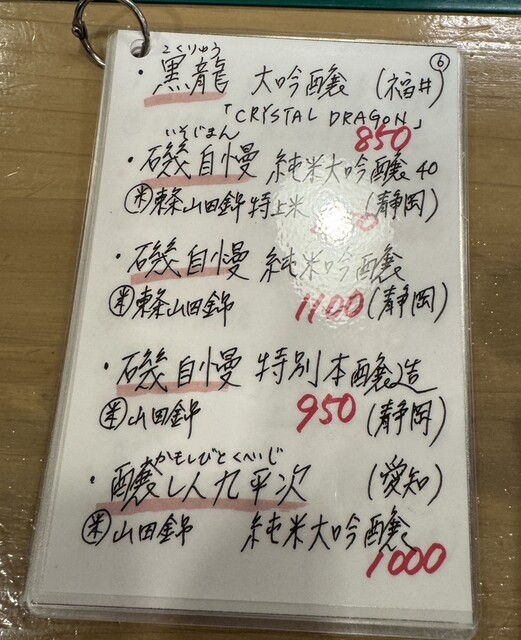 ⑥
こくりゅう
・黒龍 大吟醸 (福井)
「CRYSTAL DRAGON」
850
いそじまん
・磯自慢 純米大吟醸40
㊍東条山田錦特上米 (静岡)
・磯自慢 純米吟醸
米 東条山田錦 1100 (静岡)
・磯自慢 特別本醸造
米 山田錦 950 (静岡)
かもしびとくへいじ
・醸し人九平次 (愛知)
米 山田錦 純米大吟醸
1000